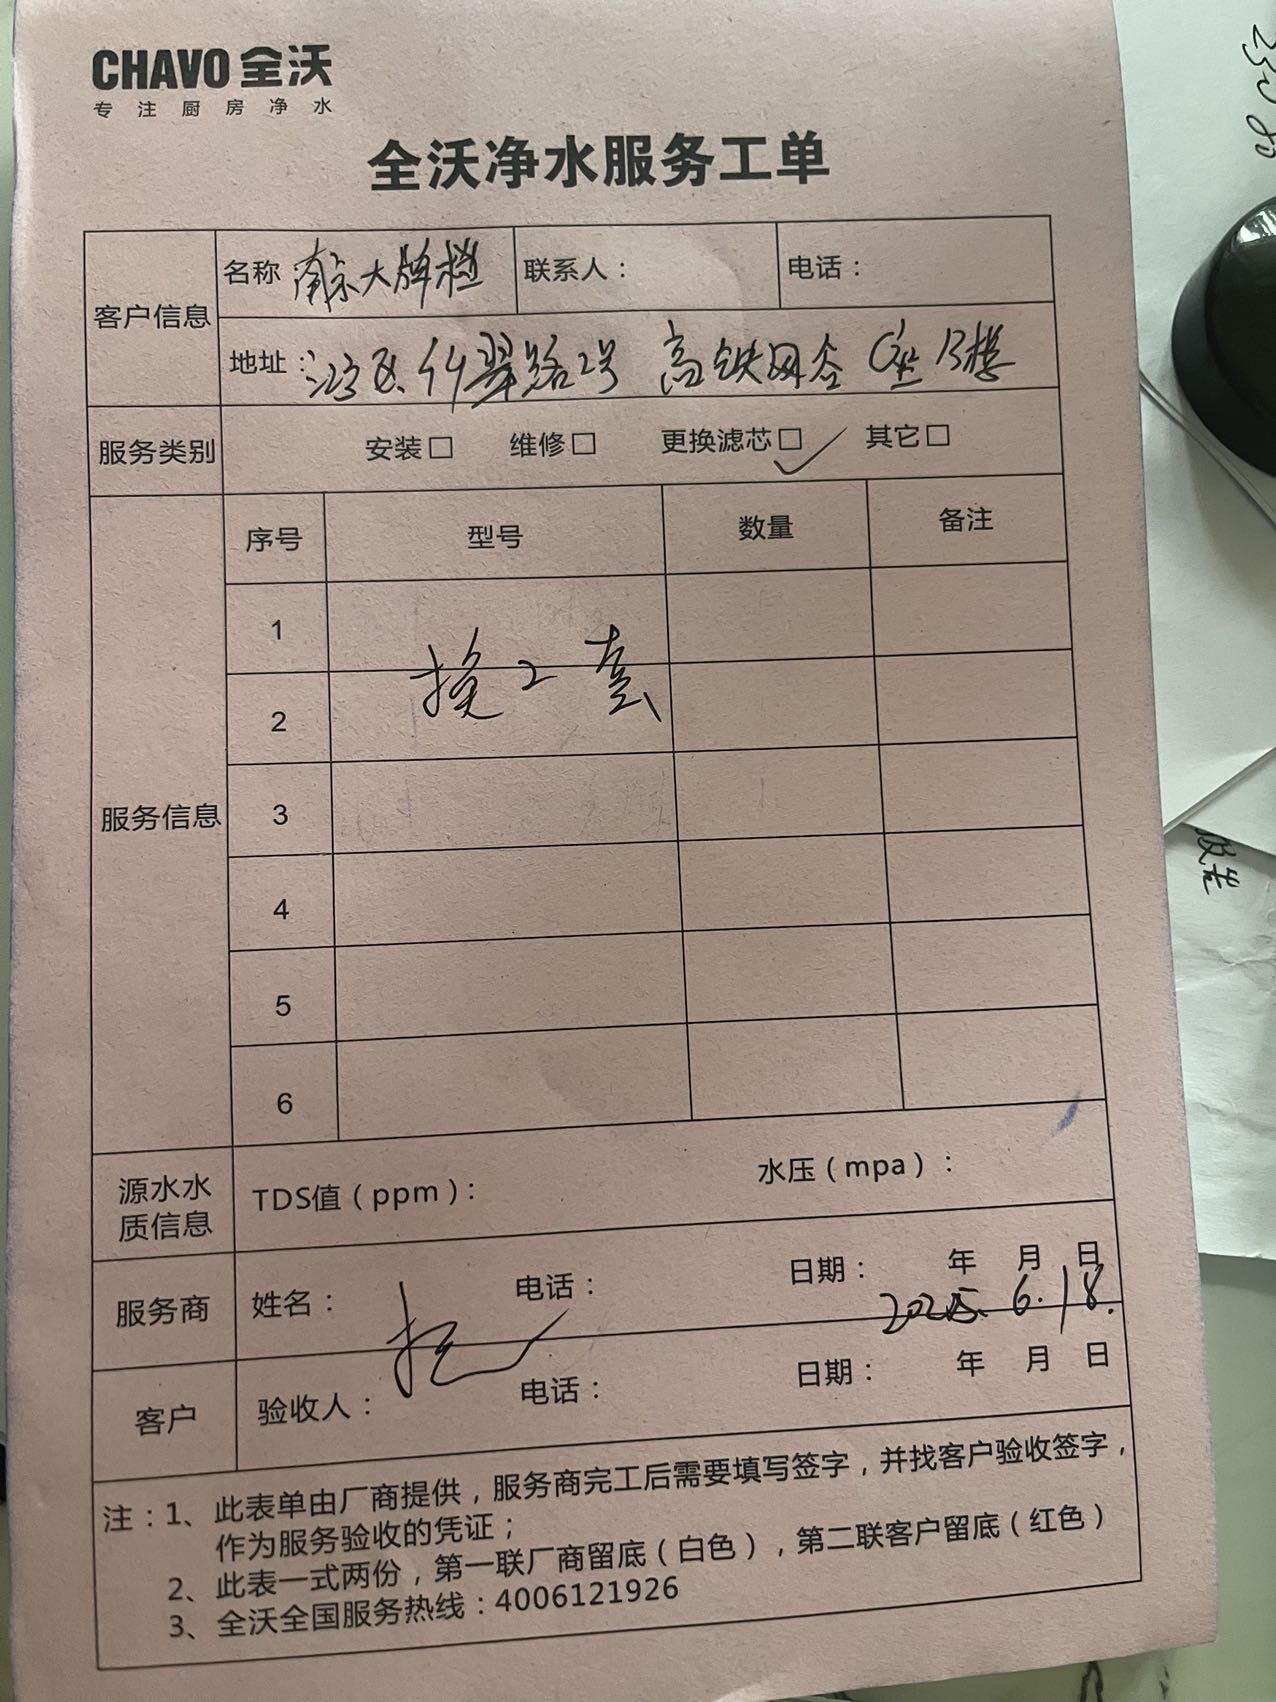 CHAVO 全沃
专注厨房净水
全沃净水服务工单
客户信息
名称：南京大牌档 联系人： 电话：
地址： 翠路2号 高铁网谷C座B楼
服务类别 安装□ 维修□ 更换滤芯□✓ 其它□
服务信息
序号 型号 数量 备注
1
换2套
2
3
4
5
6
源水水质信息 TDS值（ppm）： 水压（mpa）：
服务商 姓名： 电话： 日期： 年 月 日
2025.6.18.
客户 验收人： 电话： 日期： 年 月 日
注：1、此表单由厂商提供，服务商完工后需要填写签字，并找客户验收签字，
作为服务验收的凭证；
2、此表一式两份，第一联厂商留底（白色），第二联客户留底（红色）
3、全沃全国服务热线：4006121926